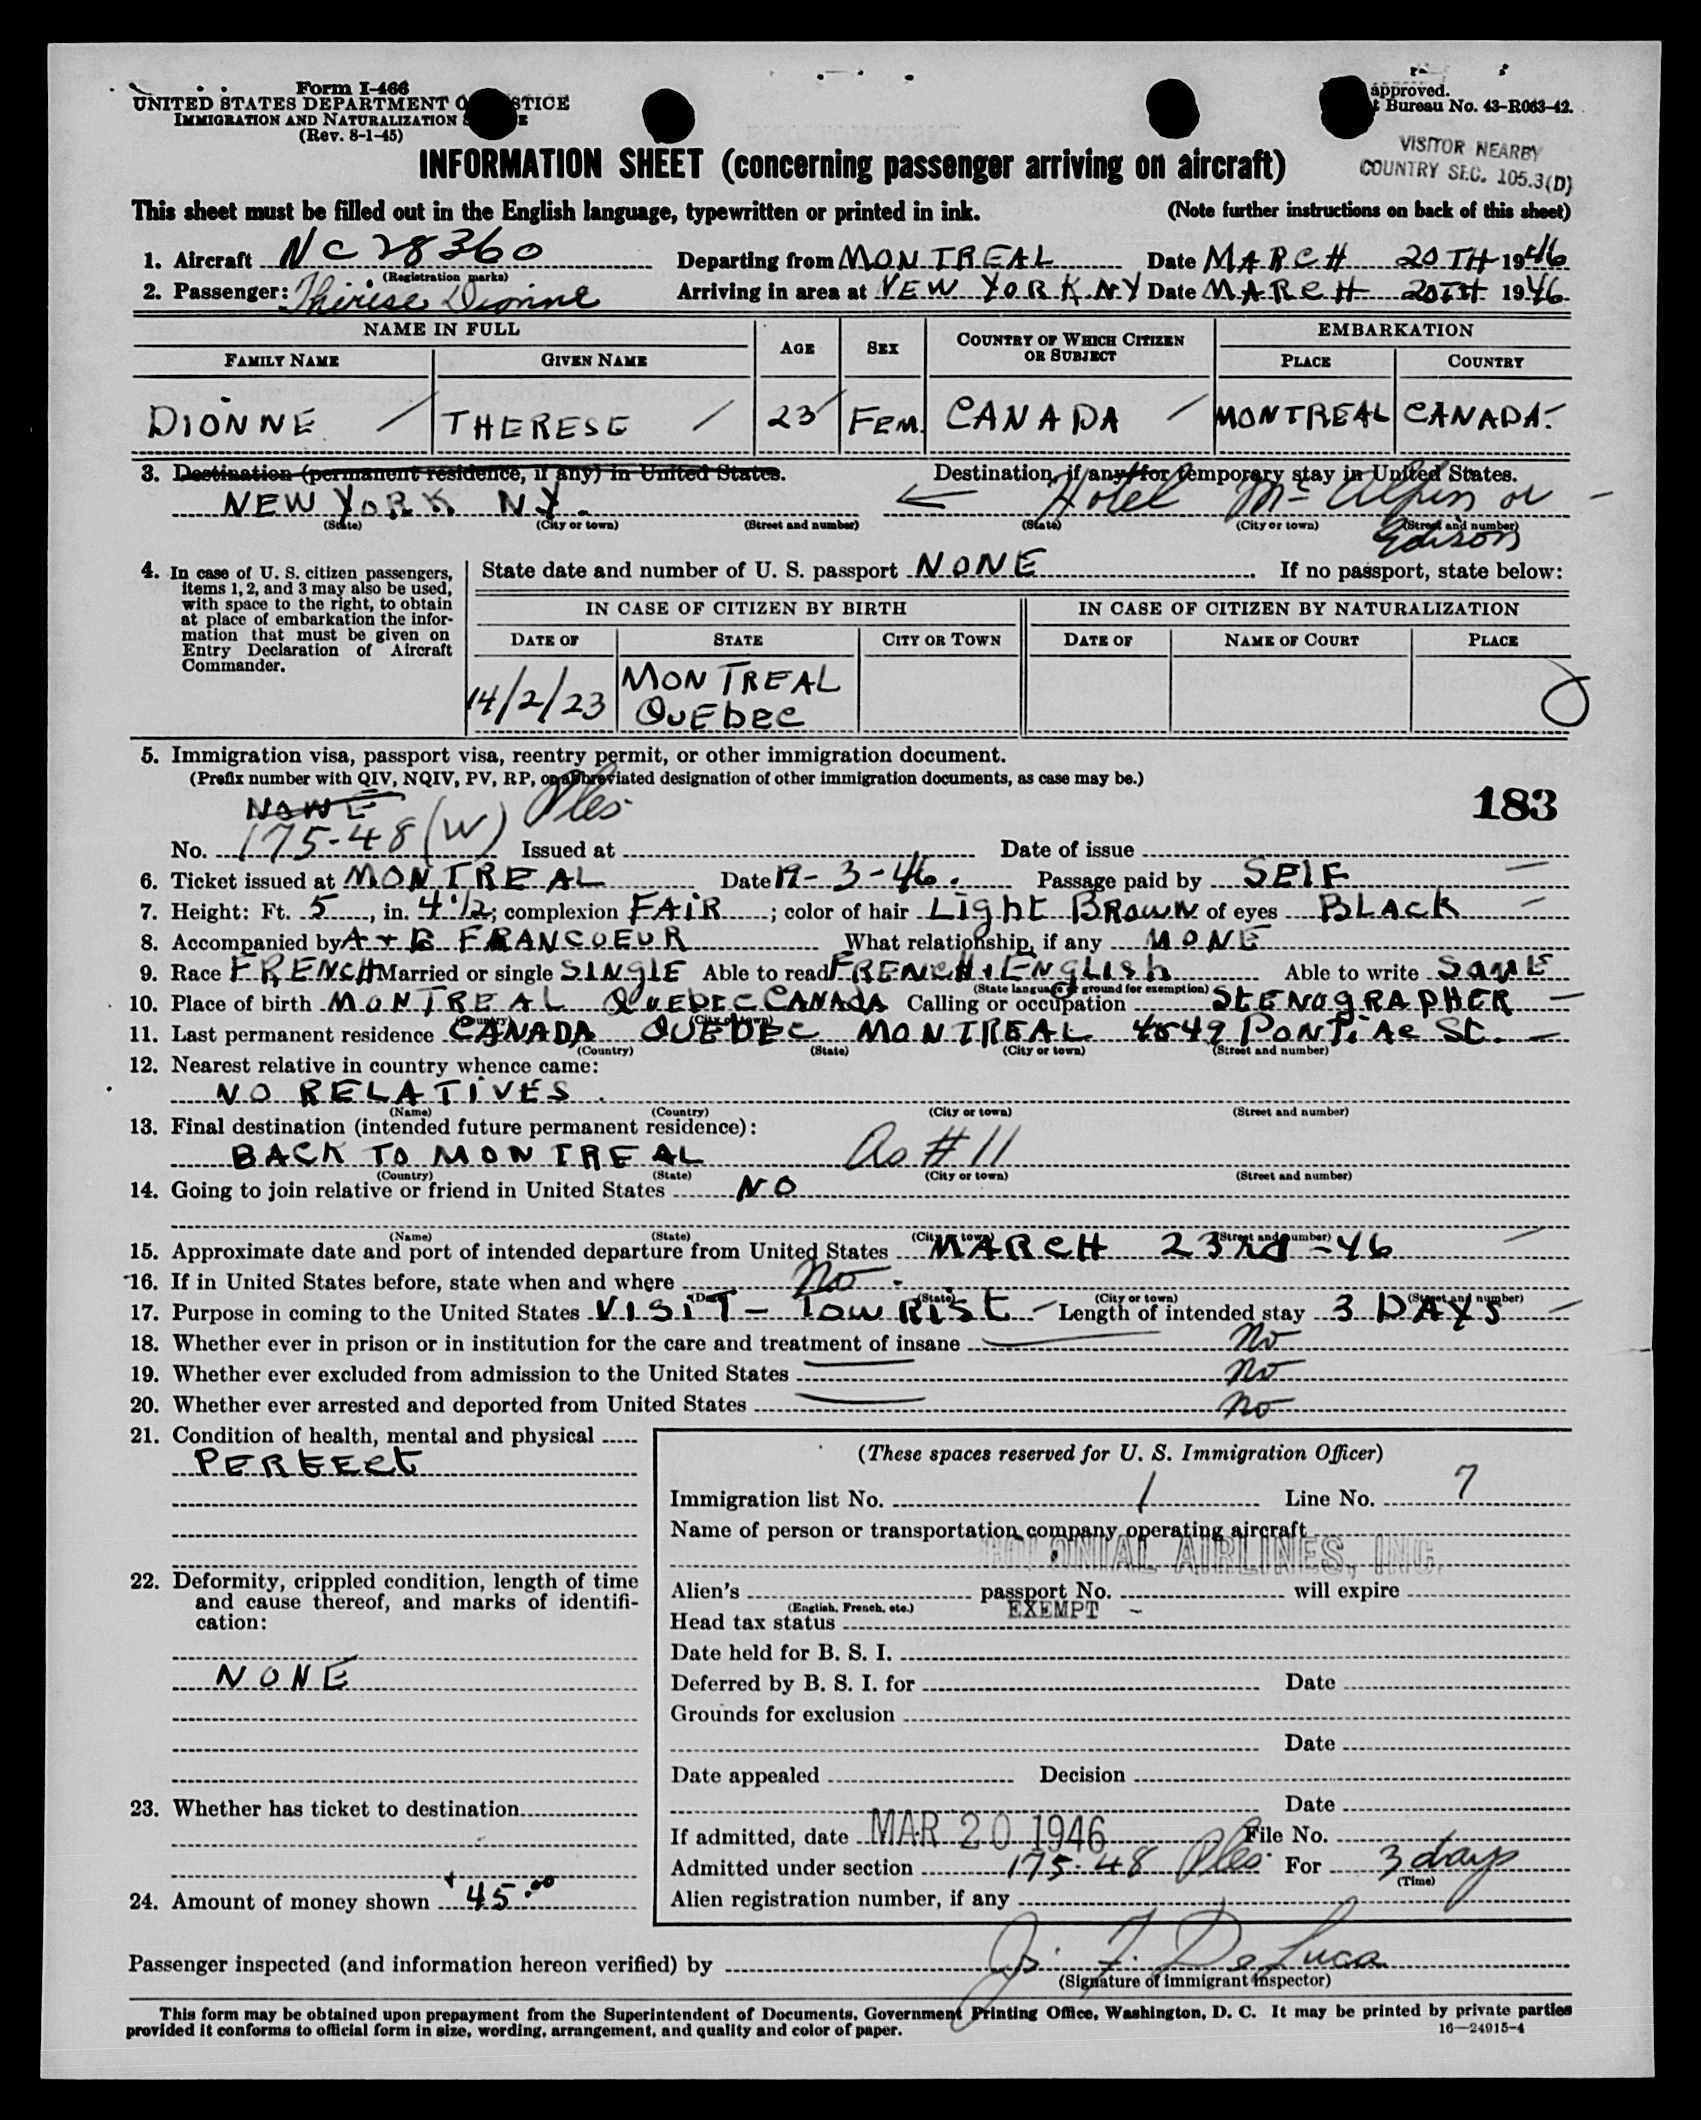 Form I-466
UNITED STATES DEPARTMENT O STICE
IMMIGRATION AND NATURALIZATION S E
(Rev. 8-1-45)
approved.
t Bureau No. 43-R063-42.
VISITOR NEARBY
COUNTRY SEC. 105.3(D)
INFORMATION SHEET (concerning passenger arriving on aircraft)
This sheet must be filled out in the English language, typewritten or printed in ink. (Note further instructions on back of this sheet)
1. Aircraft NC 28360 Departing from MONTREAL Date MARCH 20TH 1946
(Registration marks)
2. Passenger: Thérèse Dionne Arriving in area at NEW YORK NY Date MARCH 20TH 1946
NAME IN FULL AGE SEX COUNTRY OF WHICH CITIZEN OR SUBJECT EMBARKATION
FAMILY NAME GIVEN NAME PLACE COUNTRY
DIONNE / THERESE / 23 / FEM. CANADA / MONTREAL CANADA.
3. Destination (permanent residence, if any) in United States. Destination, if any, for temporary stay in United States.
NEW YORK NY. ← Hotel Mc Alpin or Edison
(State) (City or town) (Street and number) (State) (City or town) (Street and number)
4. In case of U. S. citizen passengers, items 1, 2, and 3 may also be used, with space to the right, to obtain at place of embarkation the information that must be given on Entry Declaration of Aircraft Commander.
State date and number of U. S. passport NONE. If no passport, state below:
IN CASE OF CITIZEN BY BIRTH IN CASE OF CITIZEN BY NATURALIZATION
DATE OF STATE CITY OR TOWN DATE OF NAME OF COURT PLACE
14/2/23 MONTREAL QUEBEC
5. Immigration visa, passport visa, reentry permit, or other immigration document.
(Prefix number with QIV, NQIV, PV, RP, or abbreviated designation of other immigration documents, as case may be.)
NONE
183
No. 175-48 (W) Issued at Date of issue
6. Ticket issued at MONTREAL Date 19-3-46. Passage paid by SELF
7. Height: Ft. 5, in. 4 1/2; complexion FAIR; color of hair Light BROWN of eyes BLACK
8. Accompanied by A + B FRANCOEUR What relationship, if any NONE
9. Race FRENCH Married or single SINGLE Able to read FRENCH + ENGLISH Able to write SAME
(State language or ground for exemption)
10. Place of birth MONTREAL QUEBEC CANADA Calling or occupation STENOGRAPHER
(Country) (City or town)
11. Last permanent residence CANADA QUEBEC MONTREAL 4849 PONTIAC St.
(Country) (State) (City or town) (Street and number)
12. Nearest relative in country whence came:
NO RELATIVES.
(Name) (Country) (City or town) (Street and number)
13. Final destination (intended future permanent residence):
BACK TO MONTREAL As # 11
(Country) (State) (City or town) (Street and number)
14. Going to join relative or friend in United States NO
(Name) (State) (City or town) (Street and number)
15. Approximate date and port of intended departure from United States MARCH 23rd - 46
16. If in United States before, state when and where No.
(Date) (State) (City or town) (Street and number)
17. Purpose in coming to the United States VISIT - TOURIST Length of intended stay 3 DAYS
18. Whether ever in prison or in institution for the care and treatment of insane No
19. Whether ever excluded from admission to the United States No
20. Whether ever arrested and deported from United States No
21. Condition of health, mental and physical
PERFECT
22. Deformity, crippled condition, length of time and cause thereof, and marks of identification:
NONE
23. Whether has ticket to destination
24. Amount of money shown 45.00
(These spaces reserved for U. S. Immigration Officer)
Immigration list No. 1 Line No. 7
Name of person or transportation company operating aircraft
COLONIAL AIRLINES, INC.
Alien's passport No. will expire
(English, French, etc.)
Head tax status EXEMPT -
Date held for B. S. I.
Deferred by B. S. I. for Date
Grounds for exclusion
Date
Date appealed Decision
Date
If admitted, date MAR 20 1946 File No.
Admitted under section 175-48 For 3 days
(Time)
Alien registration number, if any
Passenger inspected (and information hereon verified) by J. F. De Luca
(Signature of immigrant inspector)
This form may be obtained upon prepayment from the Superintendent of Documents, Government Printing Office, Washington, D. C. It may be printed by private parties
provided it conforms to official form in size, wording, arrangement, and quality and color of paper. 16—24915-4